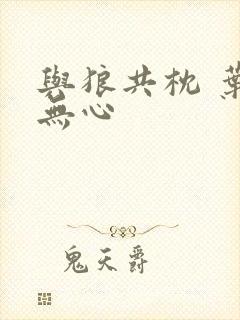 與狼共枕 葉
無心
鬼天爵